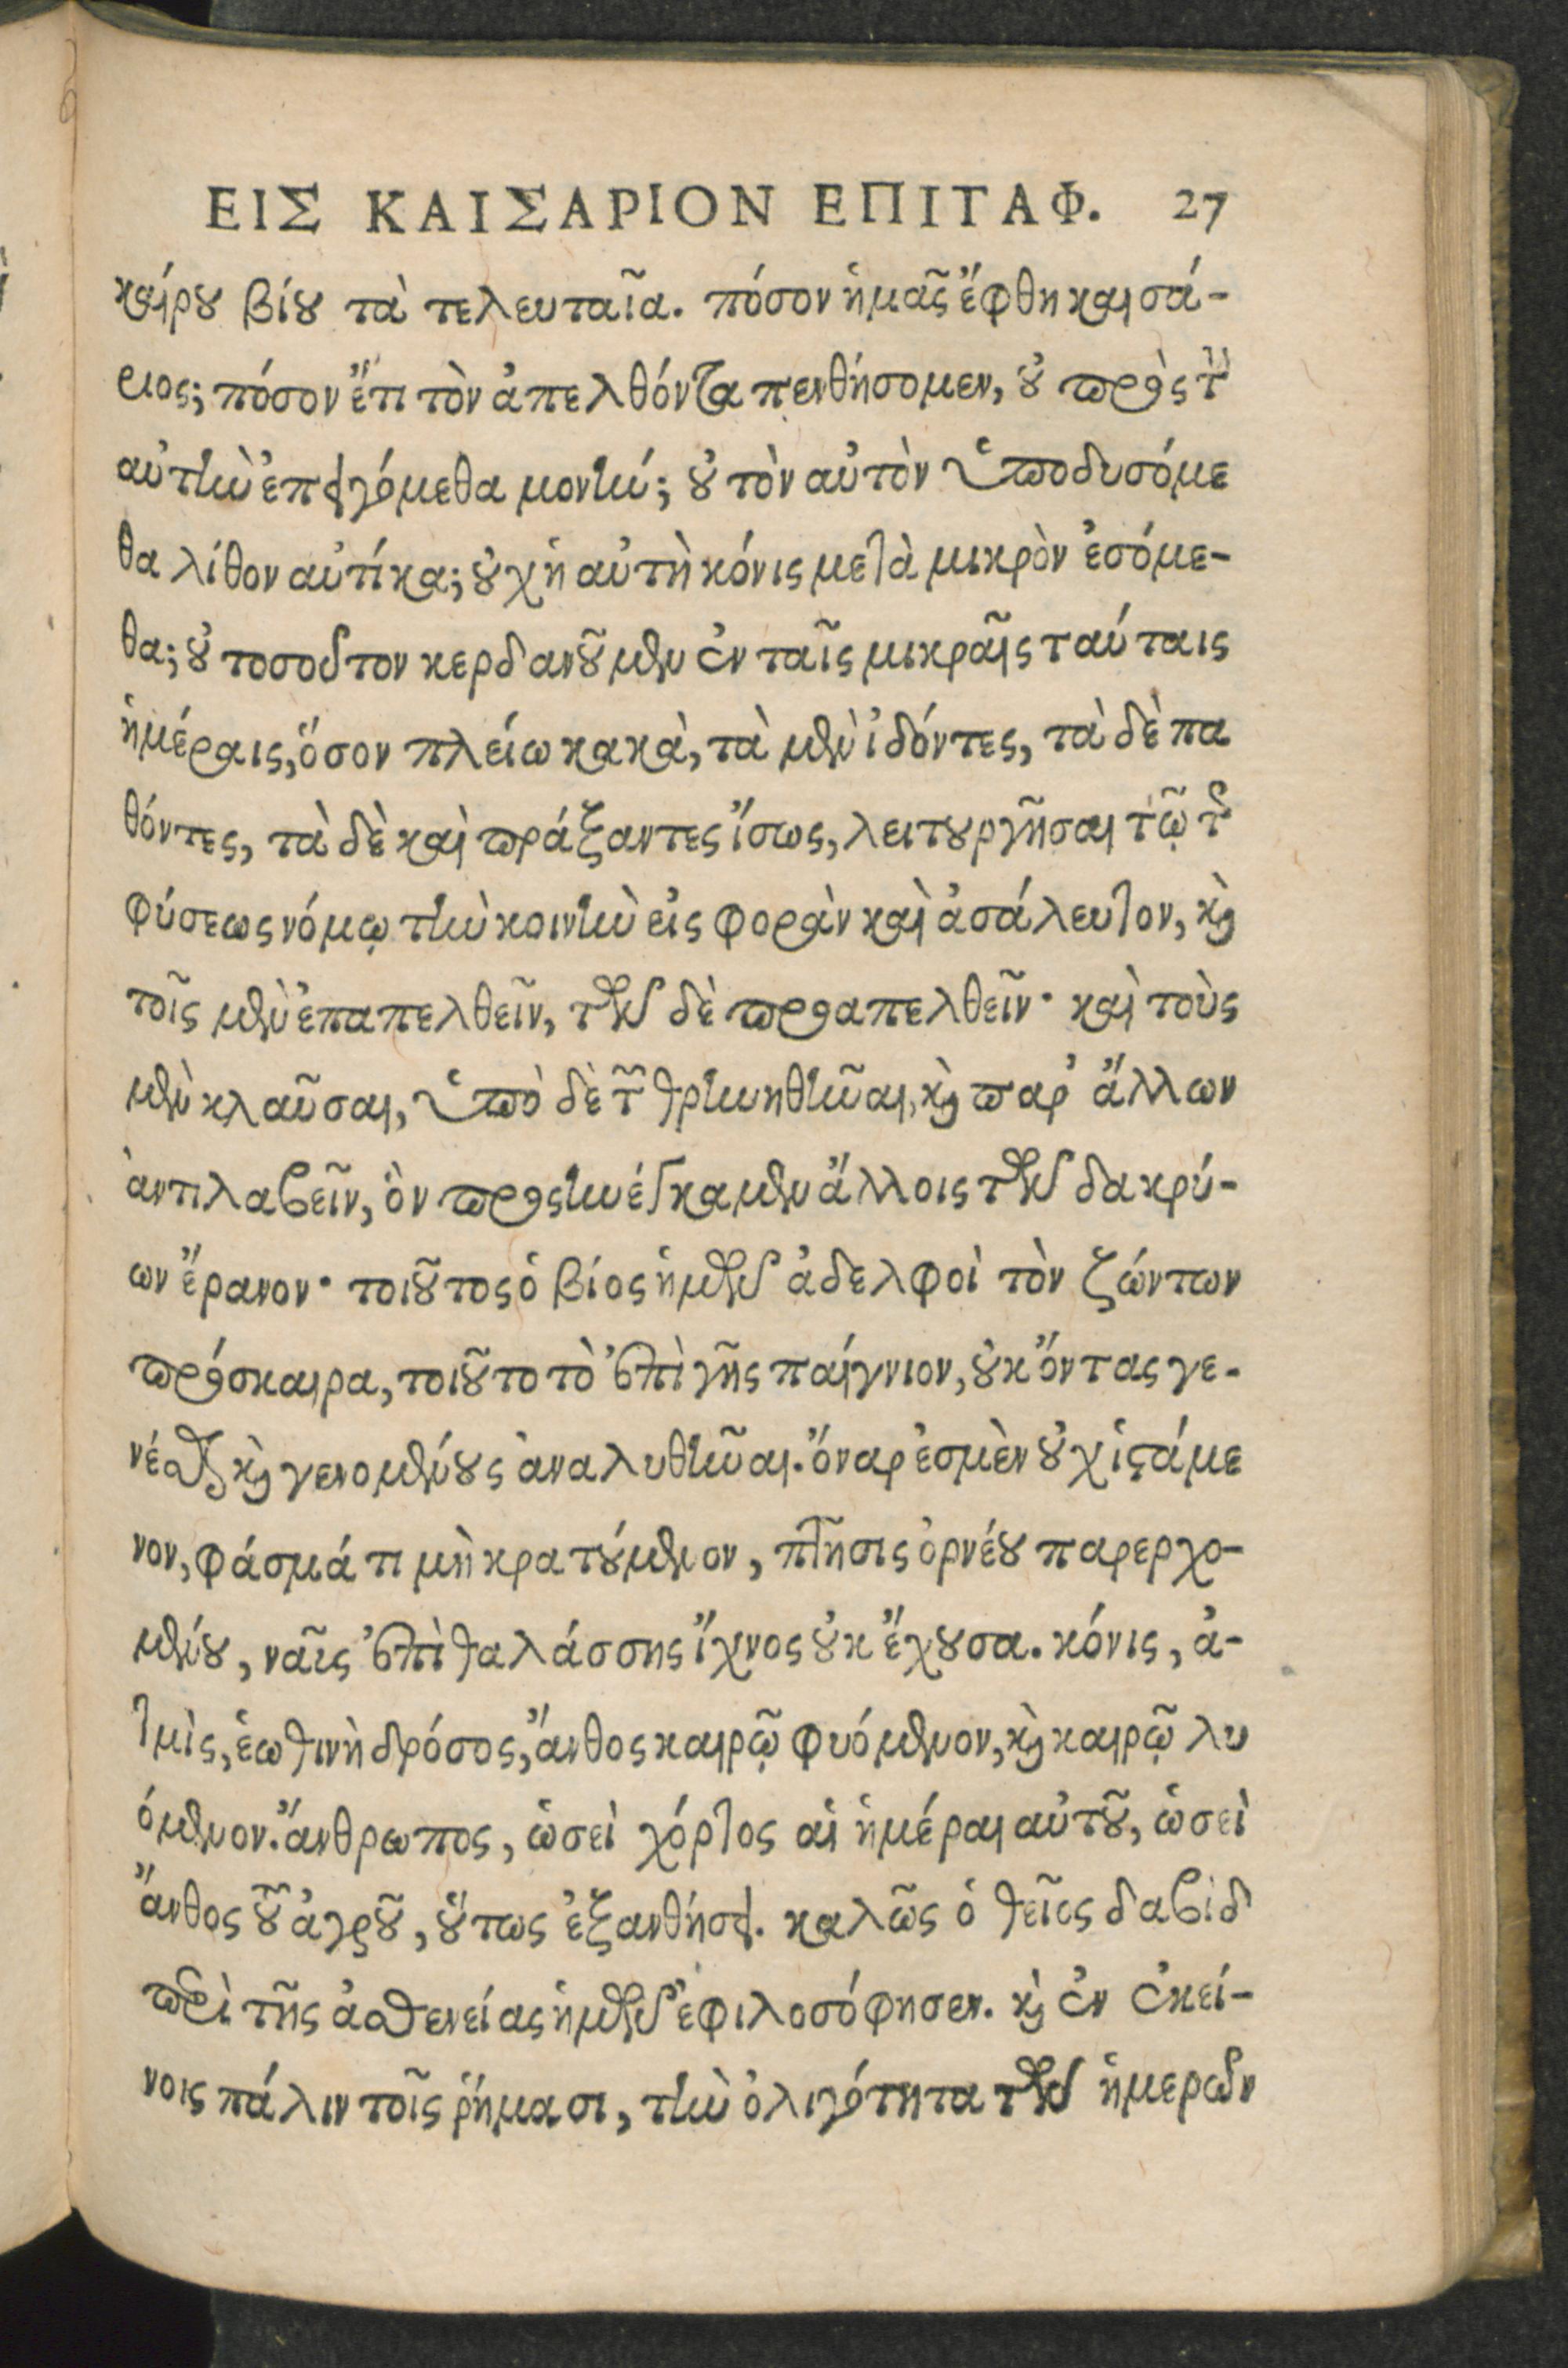 ΕΙΣ ΚΑΙΣΑΡΙΟΝ ΕΠΙΤΑΦ. 27
καίρου βίου τὰ τελευταῖα. πόσον ἡμᾶς ἔφθη καισά-
ριος; πόσον ἔτι τὸν ἀπελθόντα πενθήσομεν, οὐ πρὸς τὴν
αὐτὴν ἐπειγόμεθα μονήν; οὐ τὸν αὐτὸν ὑποδυσόμε
θα λίθον αὐτίκα; οὐχ ἡ αὐτὴ κόνις μετὰ μικρὸν ἐσόμε-
θα; οὐ τοσοῦτον κερδανοῦμεν ἐν ταῖς μικραῖς ταύταις
ἡμέραις, ὅσον πλείω κακὰ, τὰ μὲν ἰδόντες, τὰ δὲ πα
θόντες, τὰ δὲ καὶ πράξαντες ἴσως, λειτουργῆσαι τῷ τῆς
φύσεως νόμῳ τὴν κοινὴν εἰς φορὰν καὶ ἀσάλευτον, καὶ
τοῖς μὲν ἐπαπελθεῖν, τῶν δὲ προαπελθεῖν· καὶ τοὺς
μὲν κλαῦσαι, ὑπὸ δὲ τῶν θρηνηθῆναι, καὶ παρ' ἄλλων
ἀντιλαβεῖν, ὃν προσηνέγκαμεν ἄλλοις τῶν δακρύ-
ων ἔρανον· τοιοῦτος ὁ βίος ἡμῶν ἀδελφοὶ τὸν ζώντων
πρόσκαιρα, τοιοῦτο τὸ ἐπὶ γῆς παίγνιον, οὐκ ὄντας γε-
νέσθαι καὶ γενομένους ἀναλυθῆναι. ὄναρ ἐσμὲν οὐχ ἱστάμε
νον, φάσμά τι μὴ κρατούμενον, πτῆσις ὀρνέου παρερχο-
μένου, ναῦς ἐπὶ θαλάσσης ἴχνος οὐκ ἔχουσα. κόνις, ἀ-
τμὶς, ἑωθινὴ δρόσος, ἄνθος καιρῷ φυόμενον, καὶ καιρῷ λυ
όμενον. ἄνθρωπος, ὡσεὶ χόρτος αἱ ἡμέραι αὐτοῦ, ὡσεὶ
ἄνθος τοῦ ἀγροῦ, οὕτως ἐξανθήσει. καλῶς ὁ θεῖος δαβὶδ
περὶ τῆς ἀσθενείας ἡμῶν ἐφιλοσόφησεν. καὶ ἐν ἐκεί-
νοις πάλιν τοῖς ῥήμασι, τὴν ὀλιγότητα τῶν ἡμερῶν